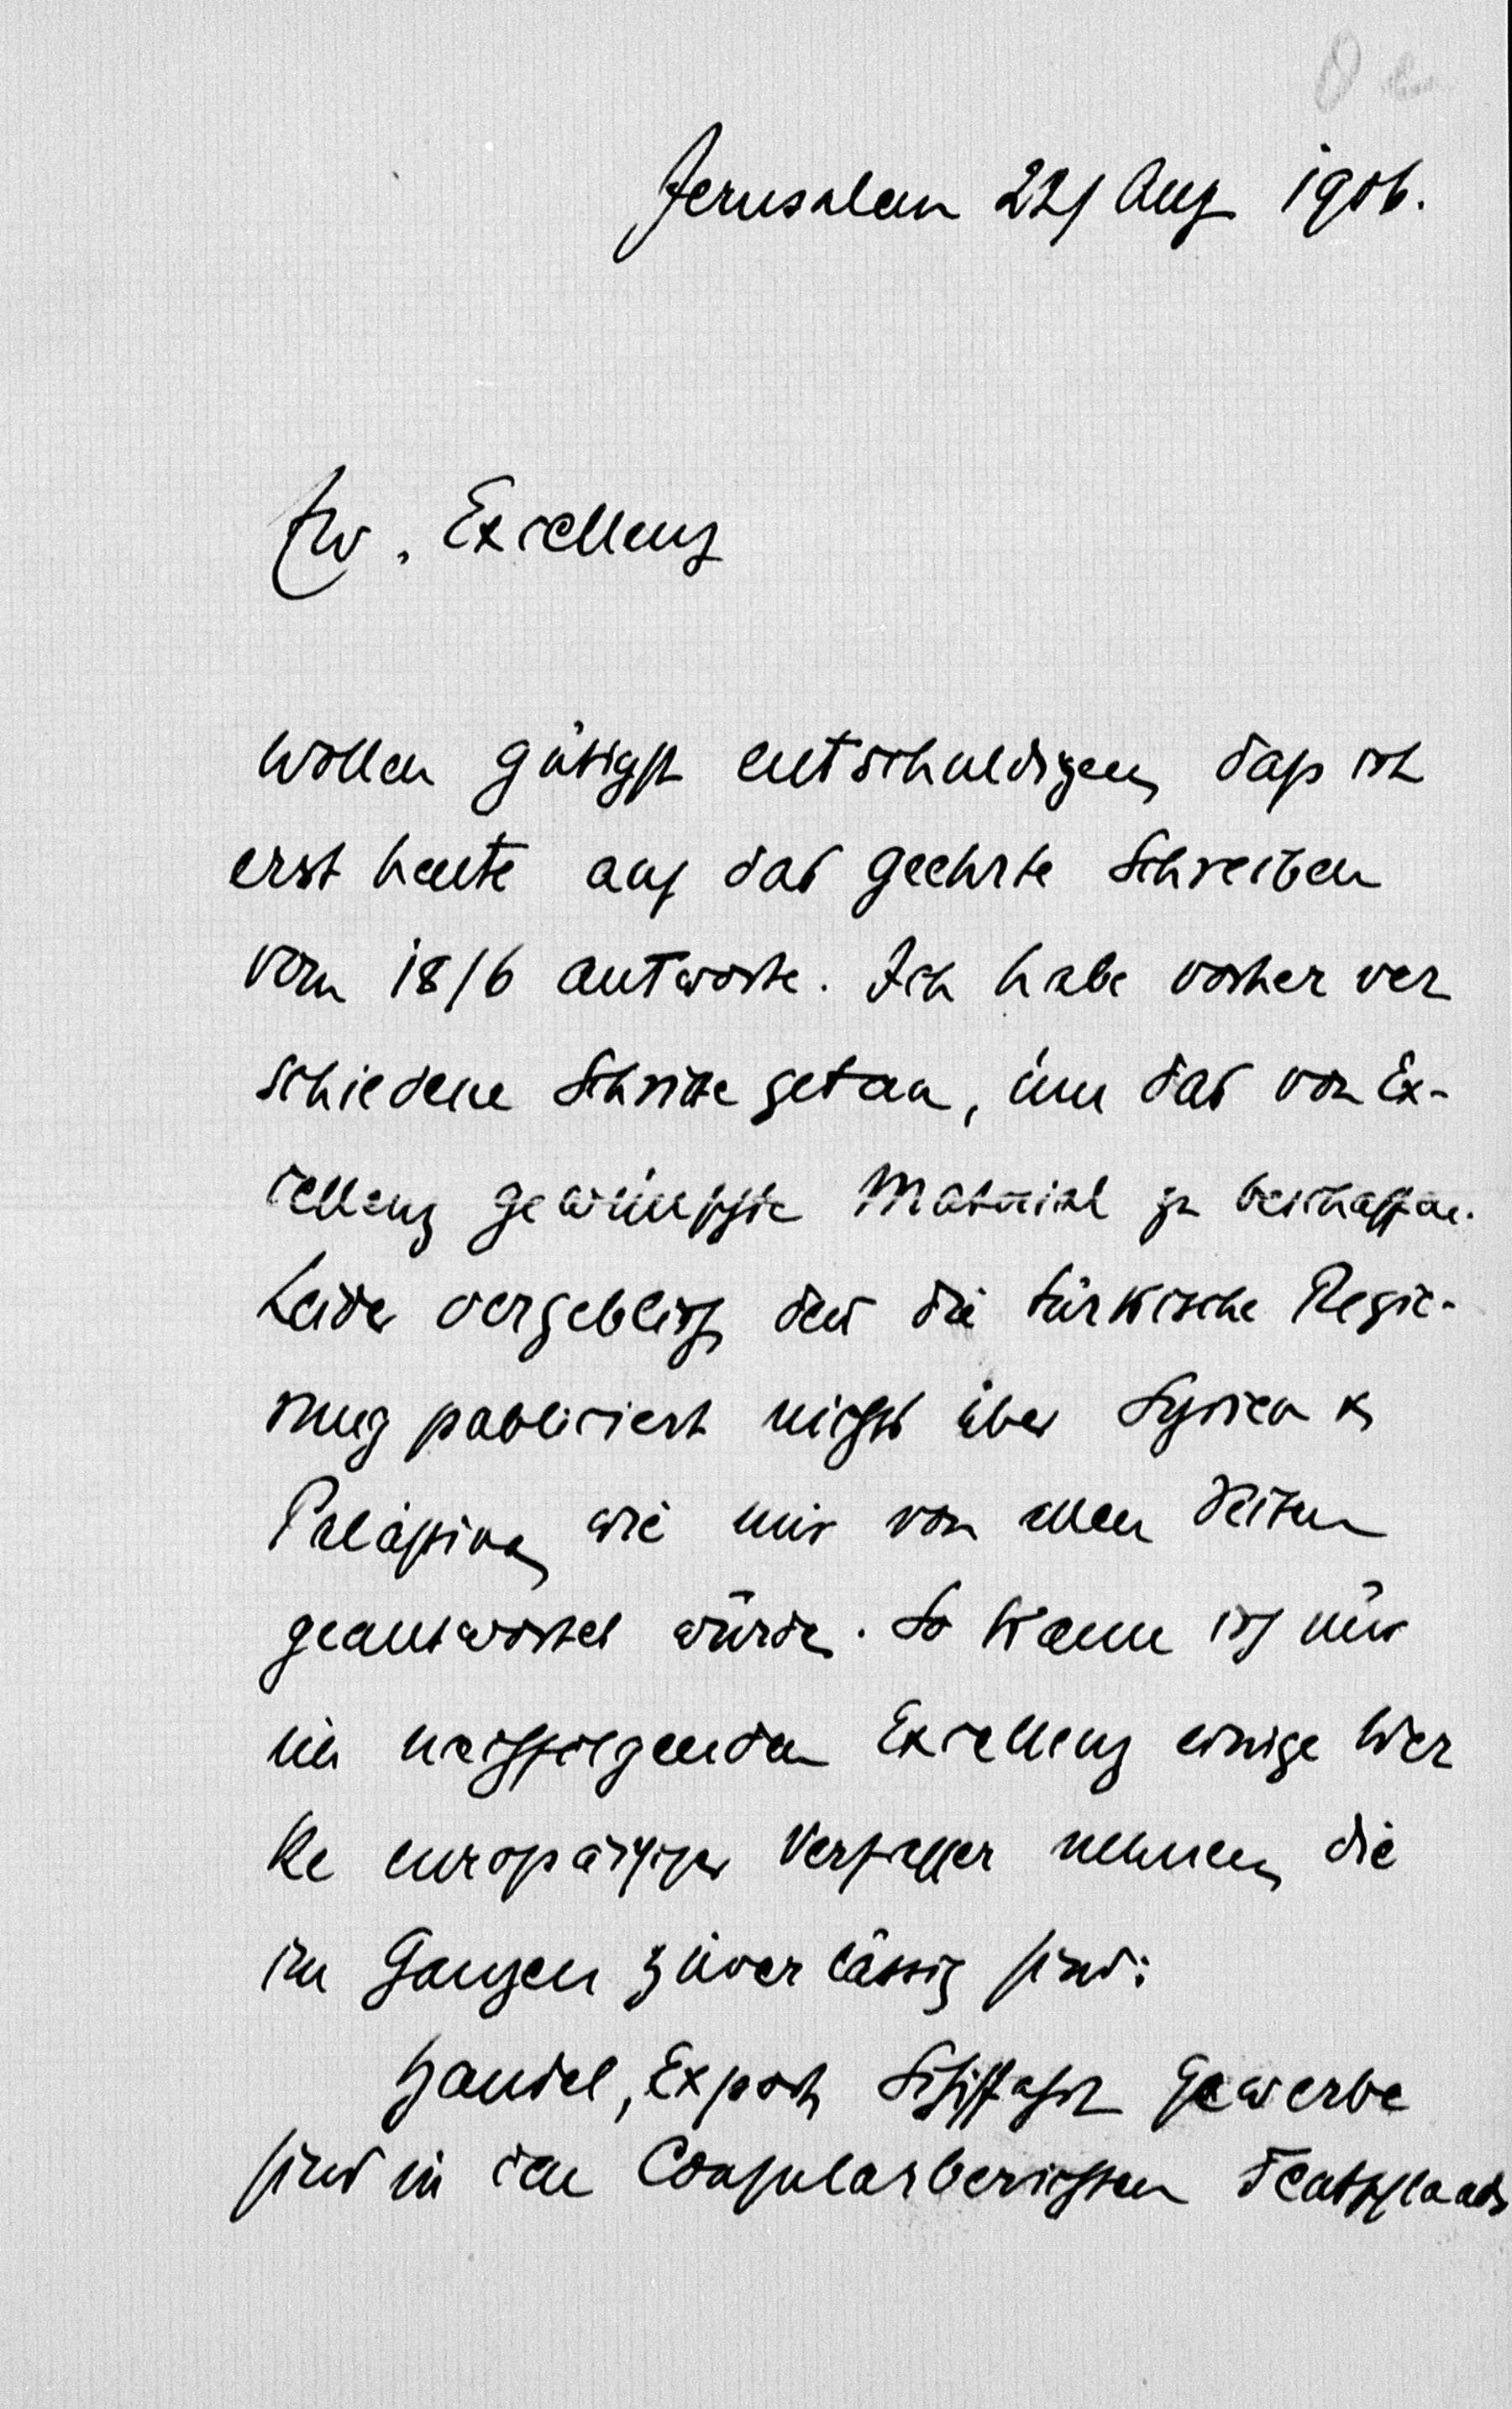 Jerusalem 22/ Aug 1906.
Ew. Excellenz
wollen gütigst entschuldigen, daß ich
erst heute auf das geehrte Schreiben
vom 18/6 antworte. Ich habe vorher ver
schiedene Schritte getan, um das von Ex-
cellenz gewünschte Material zu beschaffen.
Leider vergeblich, denn die türkische Regie-
rung publiciert nichts über Syrien &
Palästina, wie mir von allen Seiten
geantwortet wurde. So kann ich nur
im nachfolgenden Excellenz einige Wer
ke europäischer Verfasser nennen, die
im Ganzen zuverlässig sind:
Handel, Export, Schiffahrt Gewerbe
sind in den Consularberichten Deutschlands